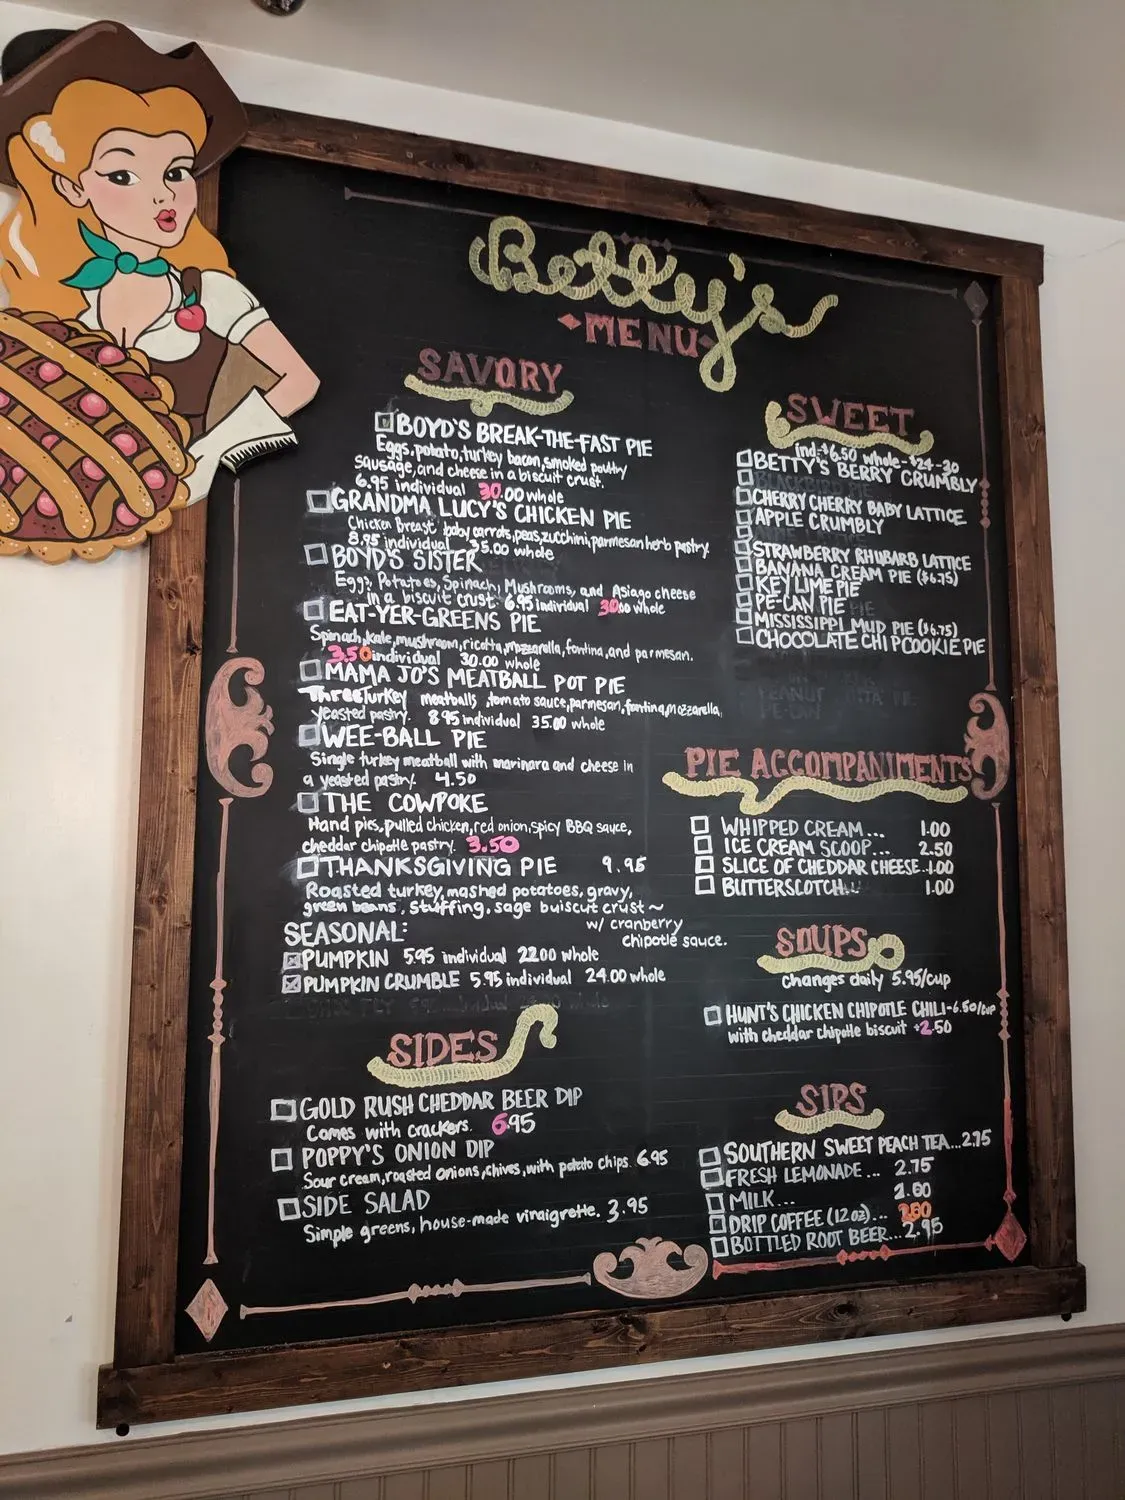 Betty's
MENU
SAVORY
BOYD'S BREAK-THE-FAST PIE
Eggs, potato, turkey bacon, smoked poultry
sausage, and cheese in a biscuit crust.
6.95 individual 30.00 whole
GRANDMA LUCY'S CHICKEN PIE
Chicken Breast, baby carrots, peas, zucchini, parmesan herb pastry.
8.95 individual 35.00 whole
BOYD'S SISTER
Eggs, Potatoes, Spinach, Mushrooms, and Asiago cheese
in a biscuit crust 6.95 individual 30.00 whole
EAT-YER-GREENS PIE
Spinach, kale, mushroom, ricotta, mozzarella, fontina, and parmesan.
3.50 individual 30.00 whole
MAMA JO'S MEATBALL POT PIE
Three Turkey meatballs, tomato sauce, parmesan, fontina, mozzarella,
yeasted pastry. 8.95 individual 35.00 whole
WEE-BALL PIE
Single turkey meatball with marinara and cheese in
a yeasted pastry. 4.50
THE COWPOKE
Hand pies, pulled chicken, red onion, spicy BBQ sauce,
cheddar chipotle pastry. 3.50
THANKSGIVING PIE 9.95
Roasted turkey, mashed potatoes, gravy,
green beans, stuffing, sage buiscut crust ~
w/ cranberry
chipotle sauce.
SEASONAL:
PUMPKIN 5.95 individual 22.00 whole
PUMPKIN CRUMBLE 5.95 individual 24.00 whole
SIDES
GOLD RUSH CHEDDAR BEER DIP
Comes with crackers. 6.95
POPPY'S ONION DIP
Sour cream, roasted onions, chives, with potato chips. 6.95
SIDE SALAD
Simple greens, house-made vinaigrette. 3.95
SWEET
ind.-$6.50 whole-$24-30
BETTY'S BERRY CRUMBLY
BLACKBIRD PIE
CHERRY CHERRY BABY LATTICE
APPLE CRUMBLY
STRAWBERRY RHUBARB LATTICE
BANANA CREAM PIE ($6.75)
KEY LIME PIE
PE-CAN PIE
MISSISSIPPI MUD PIE ($6.75)
CHOCOLATE CHIP COOKIE PIE
PIE ACCOMPANIMENTS
WHIPPED CREAM... 1.00
ICE CREAM SCOOP... 2.50
SLICE OF CHEDDAR CHEESE..1.00
BUTTERSCOTCH... 1.00
SOUPS
changes daily 5.95/cup
HUNT'S CHICKEN CHIPOTLE CHILI-6.50/cup
with cheddar chipotle biscuit +2.50
SIPS
SOUTHERN SWEET PEACH TEA...2.75
FRESH LEMONADE... 2.75
MILK...
DRIP COFFEE (12 oz)...
BOTTLED ROOT BEER...2.95